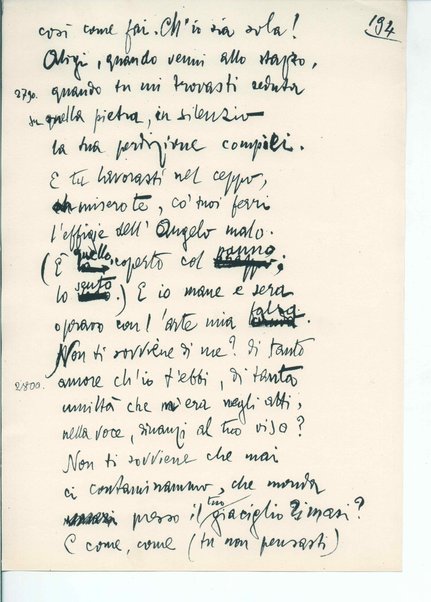 194
così come fai. Ch'io sia sola!
Aligi, quando venni allo stazzo,
2790. quando tu mi trovasti seduta
su quella pietra, in silenzio
la tua perdizione compiei.
E tu lavorasti nel ceppo,
misero te, co' tuoi ferri
l'effigie dell'Angelo muto.
(È quello, coperto col panno;
lo sento.) E io mane e sera
operavo con l'arte mia falsa.
Non ti sovviene di me? di tanto
2800. amore ch'io t'ebbi, di tanta
umiltà che m'era negli atti,
nella voce, dinanzi al tuo viso?
Non ti sovviene che mai
ci contaminammo, che monda
presso il tuo giaciglio rimasi?
E come, come (tu non pensasti)